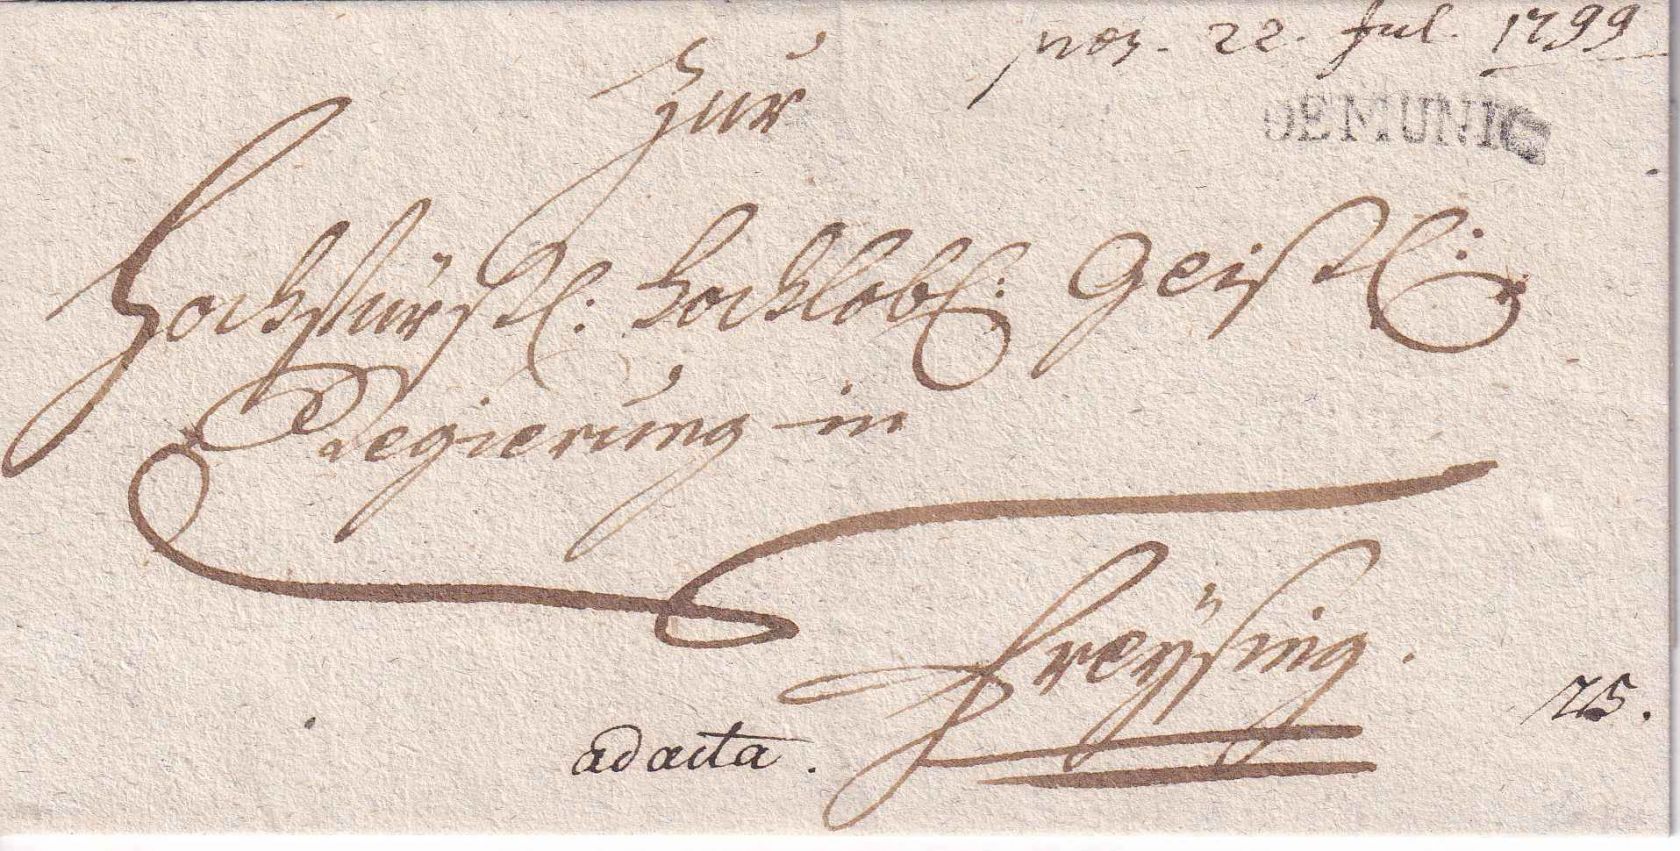 prs. 22. Jul. 1799
DE MUNIC
Zur
Hochfürstl: hochlobl: Geistl:
Regierung in
Freÿsing.
ad acta.
25.